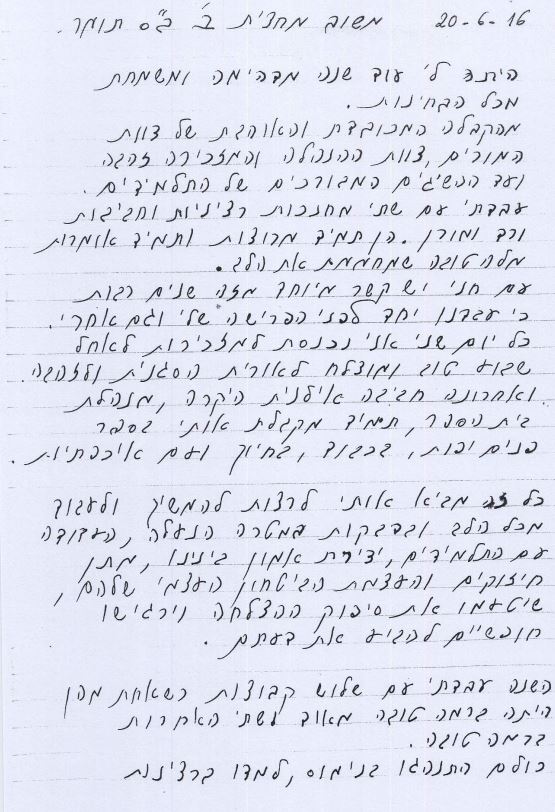 20-6-16 משוב מחצית ב' ב"ס תומר.
היתה לי עוד שנה מדהימה ומשמחת
מכל הבחינות.
מהקבלה המכובדת והאוהבת של צוות
המורים, צוות ההנהלה והמזכירה זהבה
ועד ההשיגים המבורכים של התלמידים.
עבדתי עם שתי מחנכות רציניות וחביבות
ורד ומורן. הן תמיד מרוצות ותמיד אומרות
מלה טובה שמחממת את הלב.
עם חני יש קשר מיוחד מזה שנים רבות
כי עבדנו יחד לפני הפרישה שלי וגם אחרי.
כל יום שני אני נכנסת למזכירות לאחל
שבוע טוב ומוצלח לאורית הסגנית ולזהבה.
ואחרונה חביבה אילנית היקרה, מנהלת
בית הספר, תמיד מקבלת אותי בסבר
פנים יפות, בכבוד, בחיוך ועם איכפתיות.
כל זה מביא אותי לרצות להמשיך ולעבוד
מכל הלב ובדבקות במטרה הנעלה, העבודה
עם התלמידים, יצירת אמון בינינו, מתן
חיזוקים והעצמת הביטחון העצמי שלהם,
שיטעמו את סיפוק ההצלחה וירגישו
חופשיים להביע את דעתם.
השנה עבדתי עם שלוש קבוצות כשאחת מהן
היתה ברמה טובה מאוד ושתי האחרות
ברמה טובה.
כולם התנהגו בנימוס, למדו ברצינות